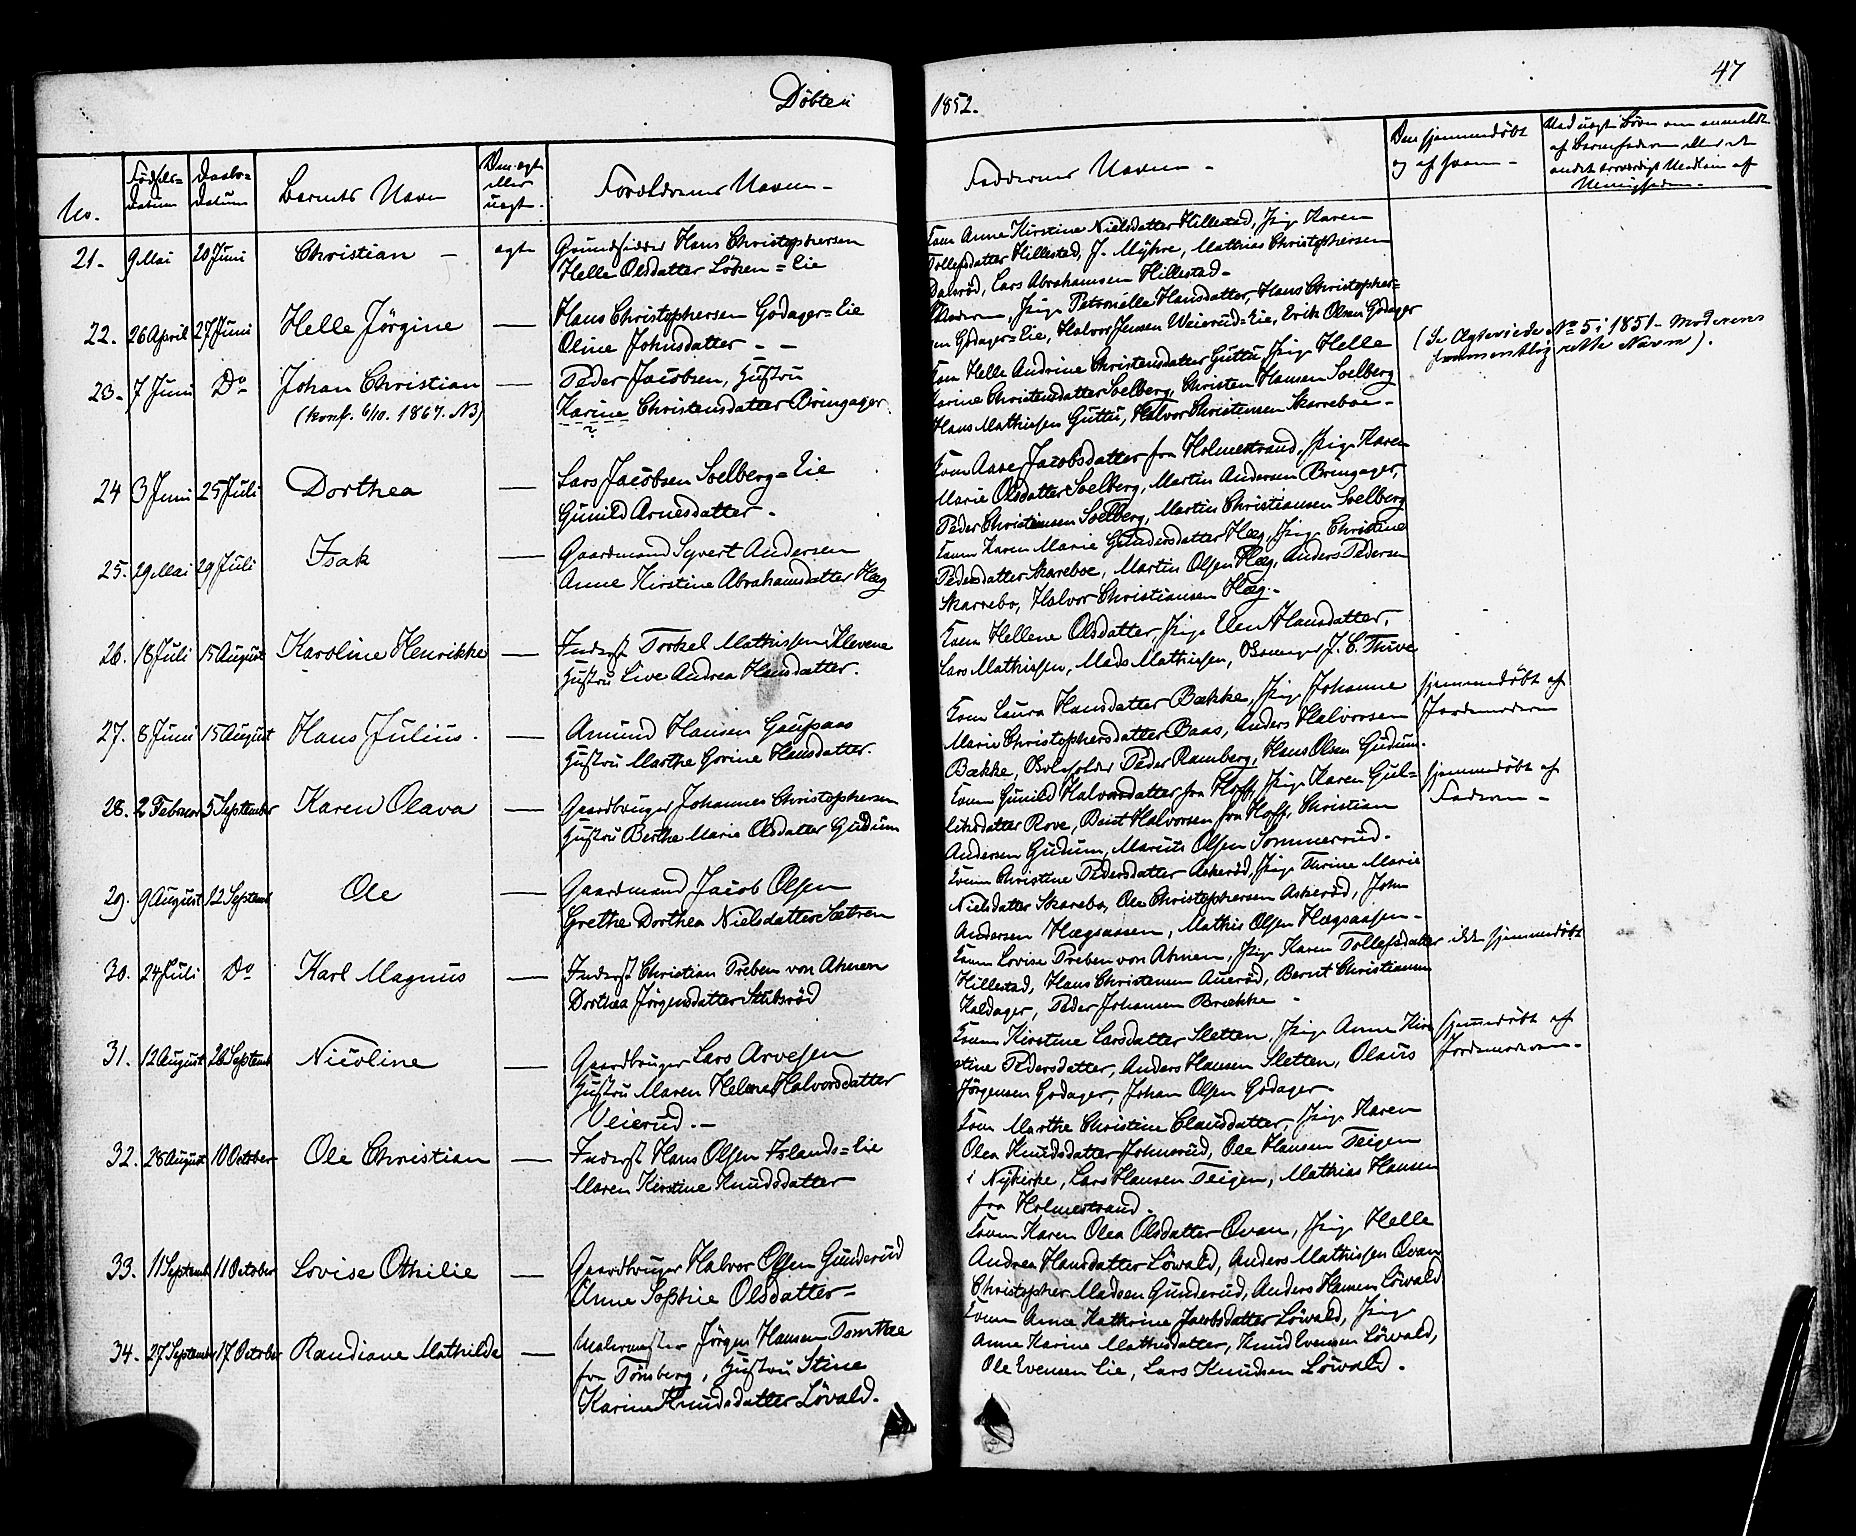 Döbte i
1852.
47
No.
Födsels-
Datum
Daabs-
Datum
Barnets Navn
Om ægte
eller
uægte.
Forældrenes Navne -
Faddernes Navne -
Om hjemmedöbt
og af hvem -
21. 9 Mai 20 Juni Christian - ægte
Hans Christophersen
Helle Olsdatter Löken=Eie
Anne Kirstine Nielsdatter Hillestad, Pige Karen
Tollefsdatter Hillestad, J. Myhre, Mathias Christophersen
Lars Abrahamsen Hillestad -
22. 26 April 27 Juni Helle Jörgine
Hans Christophersen Godager=Eie
Oline Johnsdatter - -
Moderen, Pige Petronelle Hansdatter, Hans Christopher=
sen Godager=Eie, Halvor Jensen Weierud=Eie, Erik Olsen Godager
23. 7 Juni Do Johan Christian
(konf. 6/10. 1867. N3)
Peder Jacobsen, Hustru
Karine Christensdatter Bringager.
?
Kone Helle Andrine Christensdatter Guttu, Pige Helle
Karine Christensdatter Solberg, Christen Hansen Solberg
Hans Mathisen Guttu, Halvor Christensen Skarreboe -
(Se Ægteviede No 5 i 1851 - Moderens
rette Navn).
24 3 Juni 25 Juli Dorthea
Lars Jacobsen Solberg=Eie
Gunild Arnesdatter -
Kone Aase Jacobsdatter fra Holmestrand, Pige Karen
Marie Olsdatter Solberg, Martin Andersen Bringager,
Peder Christiansen Solberg, Martin Christiansen Solberg
25. 29 Mai 29 Juli Isak
Gaardmand Syvert Andersen
Anne Kirstine Abrahamsdatter Hæg
Kone Karen Marie Gundersdatter Hæg, Pige Christine
Pedersdatter Skareboe, Martin Olsen Hæg, Anders Pedersen
Skarrebo, Halvor Christiansen Hæg -
26. 18 Juli 15 August Karoline Henrikke
Inderst Torkel Mathissen Klevene
Hustru Live Andrea Hansdatter.
Kone Hellene Olsdatter, Pige Elen Hansdatter,
Lars Mathiesen, Mads Mathiesen, J. C. Thuve
27. 8 Juni 15 August Hans Julius.
Amund Hansen Gaupaas
Hustru Marthe Gorine Hansdatter.
Kone Laura Hansdatter Bække, Pige Johanne
Marie Christophersdatter Baas, Anders Halvorsen
Bække, Peder Ramberg, Hans Olsen Gudum.
hjemmedöbt af
Jordemoderen
28. 2 Februar 5 September Karen Olava
Gaardbruger Johannes Christophersen
Hustru Berthe Marie Olsdatter Gudum
Kone Gunild Halvorsdatter fra Hoff, Pige Karen Gul=
liksdatter Rove, Bent Halvorsen fra Hoff, Christian
Andersen Gudum, Marius Olsen Sommerud -
hjemmedöbt af
Faderen -
29. 9 August 12 Septemb Ole
Gaardmand Jacob Olsen
Grethe Dorthea Nielsdatter Sætren
Kone Christine Pedersdatter Askeröd, Pige Thrine Marie
Nielsdatter Skarebo, Ole Christophersen Askeröd, John
Andersen Hægsaasen, Mathis Olsen Hægsaasen -
30. 24 Juli Do Karl Magnus
Inderst Christian Preben von Ahnen
Dorthea Jörgensdatter Stubsröd
Kone Lovise Preben von Ahnen, Pige Karen Tollefsdatter
Hillestad, Hans Christensen Aueröd, Bernt Christiansen
Haldager, Peder Johansen Brække -
ikke hjemmedöbt
31. 12 August 26 Septemb Nicoline
Gaardbruger Lars Arvesen
Hustru Maren Helene Halvorsdatter
Veierud. -
Kone Kirstine Larsdatter Sletten, Pige Anne Kir=
stine Pedersdatter, Anders Hansen Sletten, Olaus
Jörgensen Godager, Johan Olsen Godager
hjemmedöbt af
Jordemoderen -
32. 28 August 10 October Ole Christian
Inderst Hans Olsen Islands=Eie
Maren Kirstine Knudsdatter
Kone Marthe Christine Clausdatter, Pige Karen
Olea Knudsdatter Johnsrud, Ole Hansen Teigen
i Nykirke, Lars Hansen Teigen, Mathias Hansen
fra Holmestrand.
33. 11 Septemb 11 October Lovise Othilie
Gaardbruger Halvor Olsen Gunderud
Anne Sophie Olsdatter -
Kone Karen Olea Olsdatter Qvan, Pige Helle
Andrea Hansdatter Löwald, Anders Mathissen Qvan
Christopher Madsen Gunderud, Anders Hansen Löwald
34. 27 Septemb 17 October Randiane Mathilde
Jörgen Hansen Tomthe
fra Tönsberg, Hustru Stine
Karine Knudsdatter Lövald.
Kone Anne Kathrine Jacobsdatter Löwald, Pige
Anne Karine Mathisdatter, Knud Evensen Löwald,
Ole Evensen Eie, Lars Knudsen Löwald.